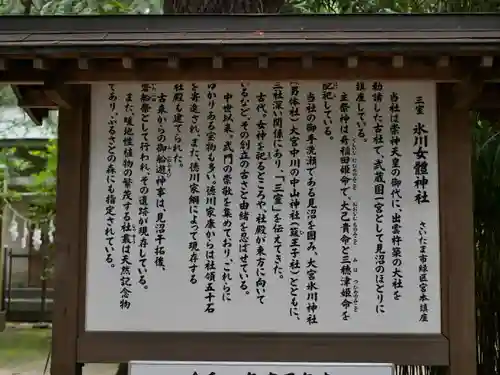 三室 氷川女體神社
さいたま市緑区宮本鎮座
当社は崇神天皇の御代に、出雲杵築の大社を
勧請した古社で、武蔵国一宮として見沼のほとりに
鎮座している。
主祭神は奇稲田姫命で、大己貴命と三穂津姫命を
配祀している。
当社の御手洗瀬である見沼を囲み、大宮氷川神社
(男体社)大宮中川の中山神社(簸王子社)とともに、
三社深い関係にあり、「三室」を伝えてきた。
古代、女神を祀るところや社殿が東方に向いて
いるなど、その創立の古さと由緒を忍ばせている。
中世以来、武門の崇敬を集めており、これらに
ゆかりある宝物も多い、徳川家康からは社領五十石
を寄進され、また、徳川家綱によって現存する
社殿も建てられた。
古来からの御船遊神事は、見沼干拓後、
磐船祭として行われ、その遺跡が現存している。
また、暖地性植物の繁茂する社叢は天然記念物
であり、ふるさとの森にも指定されている。